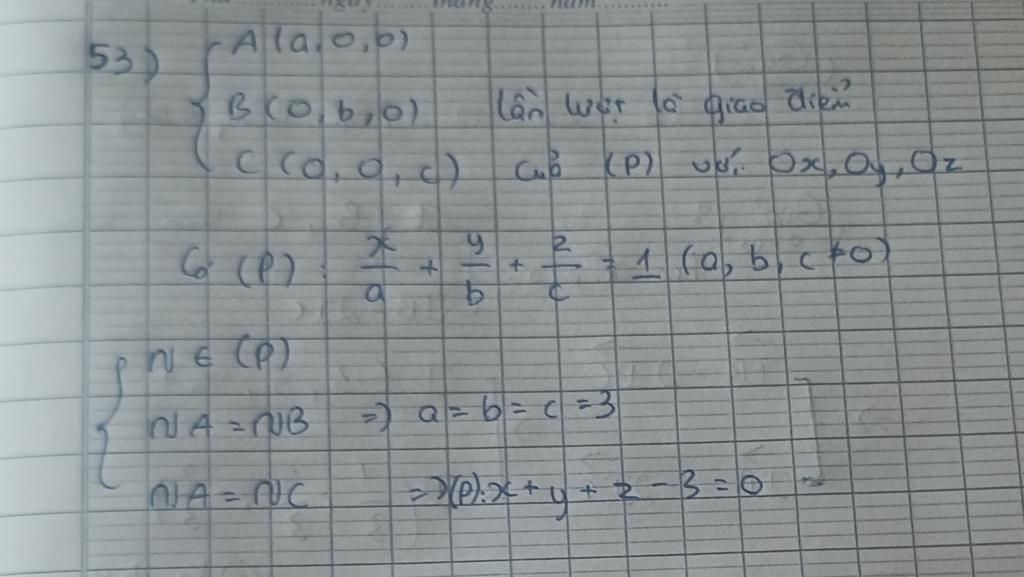 53) { A(a,0,b)
B(0,b,0) lần lượt là giao điểm
C(0,0,c) của (P) với Ox, Oy, Oz
Có (P): x/a + y/b + z/c = 1 (a, b, c ≠ 0)
{ N ∈ (P)
NA = NB => a = b = c = 3
NA = NC => (P): x + y + z - 3 = 0